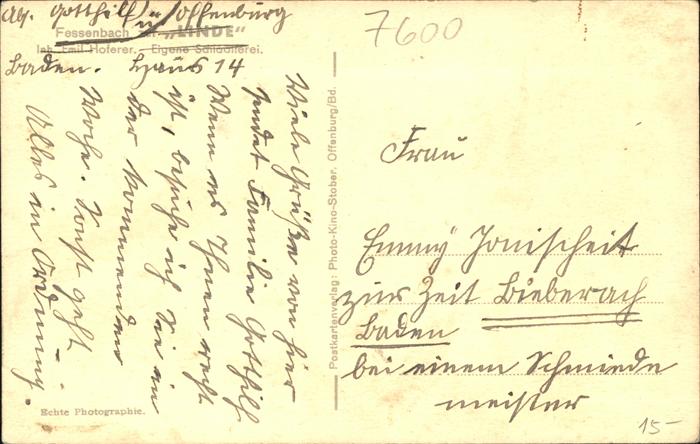 Abs. Gotthilf, Offenburg
Fessenbach "LINDE"
Inh. Emil Hoferer. Eigene Schlächterei.
Baden. Haus 14
Viele Grüße von hier
sendet Familie Gotthilf
Wenn es Ihnen recht
ist, besuche ich Sie in
der kommenden
Woche. Sonst geht
Alles in Ordnung.
Echte Photographie.
Postkartenverlag: Photo-Kino-Stober, Offenburg/Bd.
7600
Frau
Emmy Jonischeit
zur Zeit Bieberach
Baden
bei einem Schmiede
meister
15-